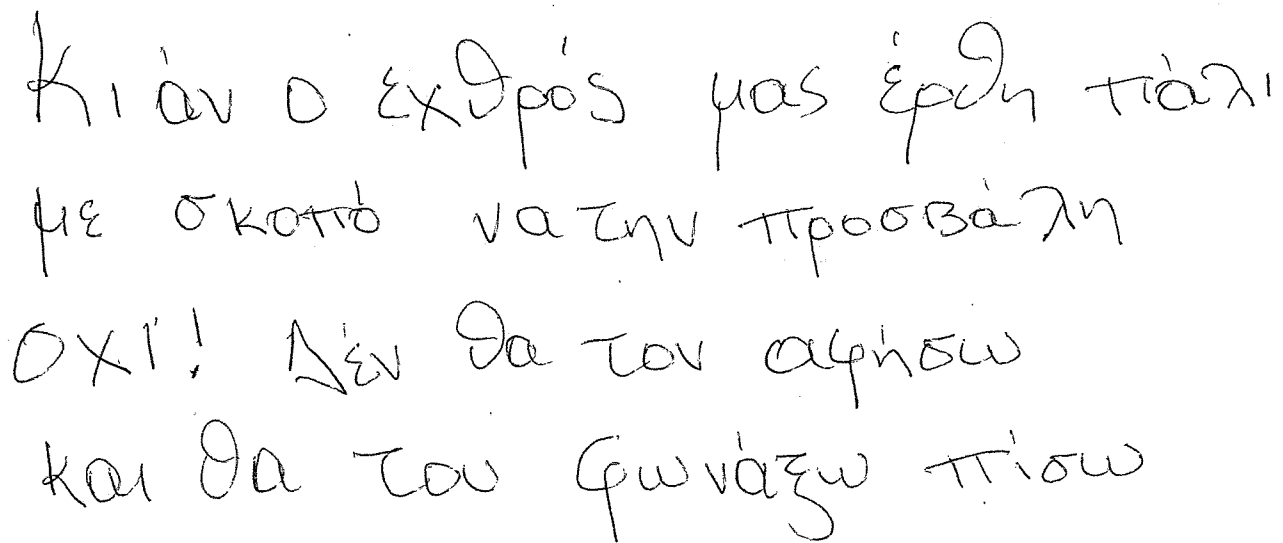 Κι άν ο εχθρός μας έρθη πάλι
με σκοπό να την προσβάλη
οχί! Δέν θα τον αφήσω
και θα του φωνάξω πίσω